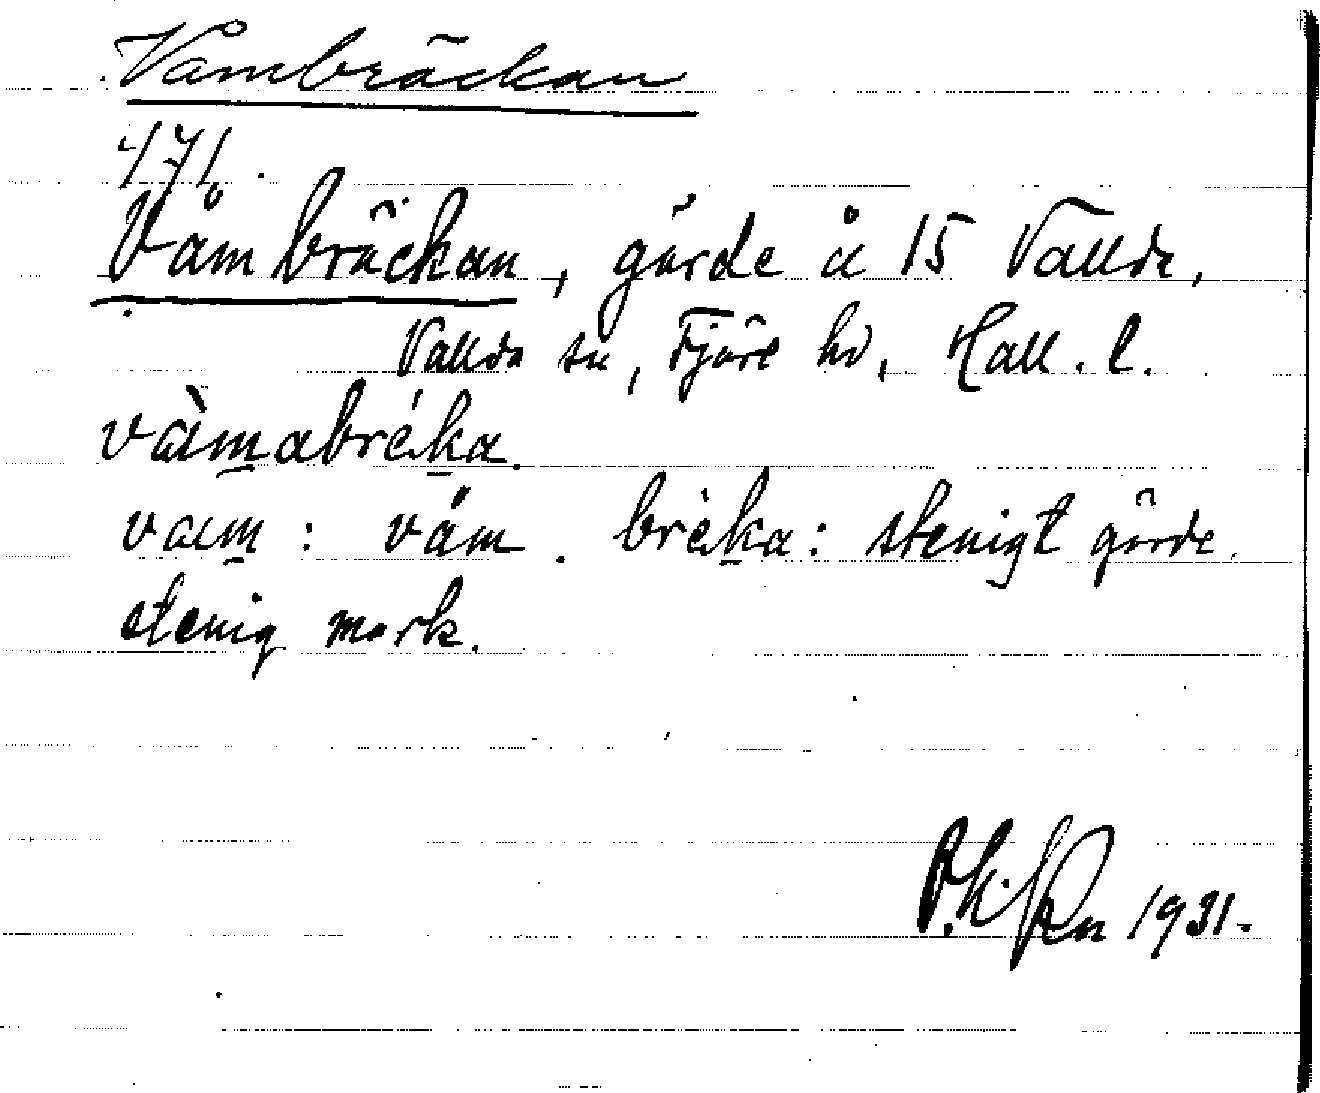 Våmbräckan
471.
Våmbräckan, gärde å 15 Vallda,
Vallda sn, Fjäre hd, Hall. l.
vàmabréka.
vam : våm. brèka: stenigt gärde.
stenig mark.
1931.